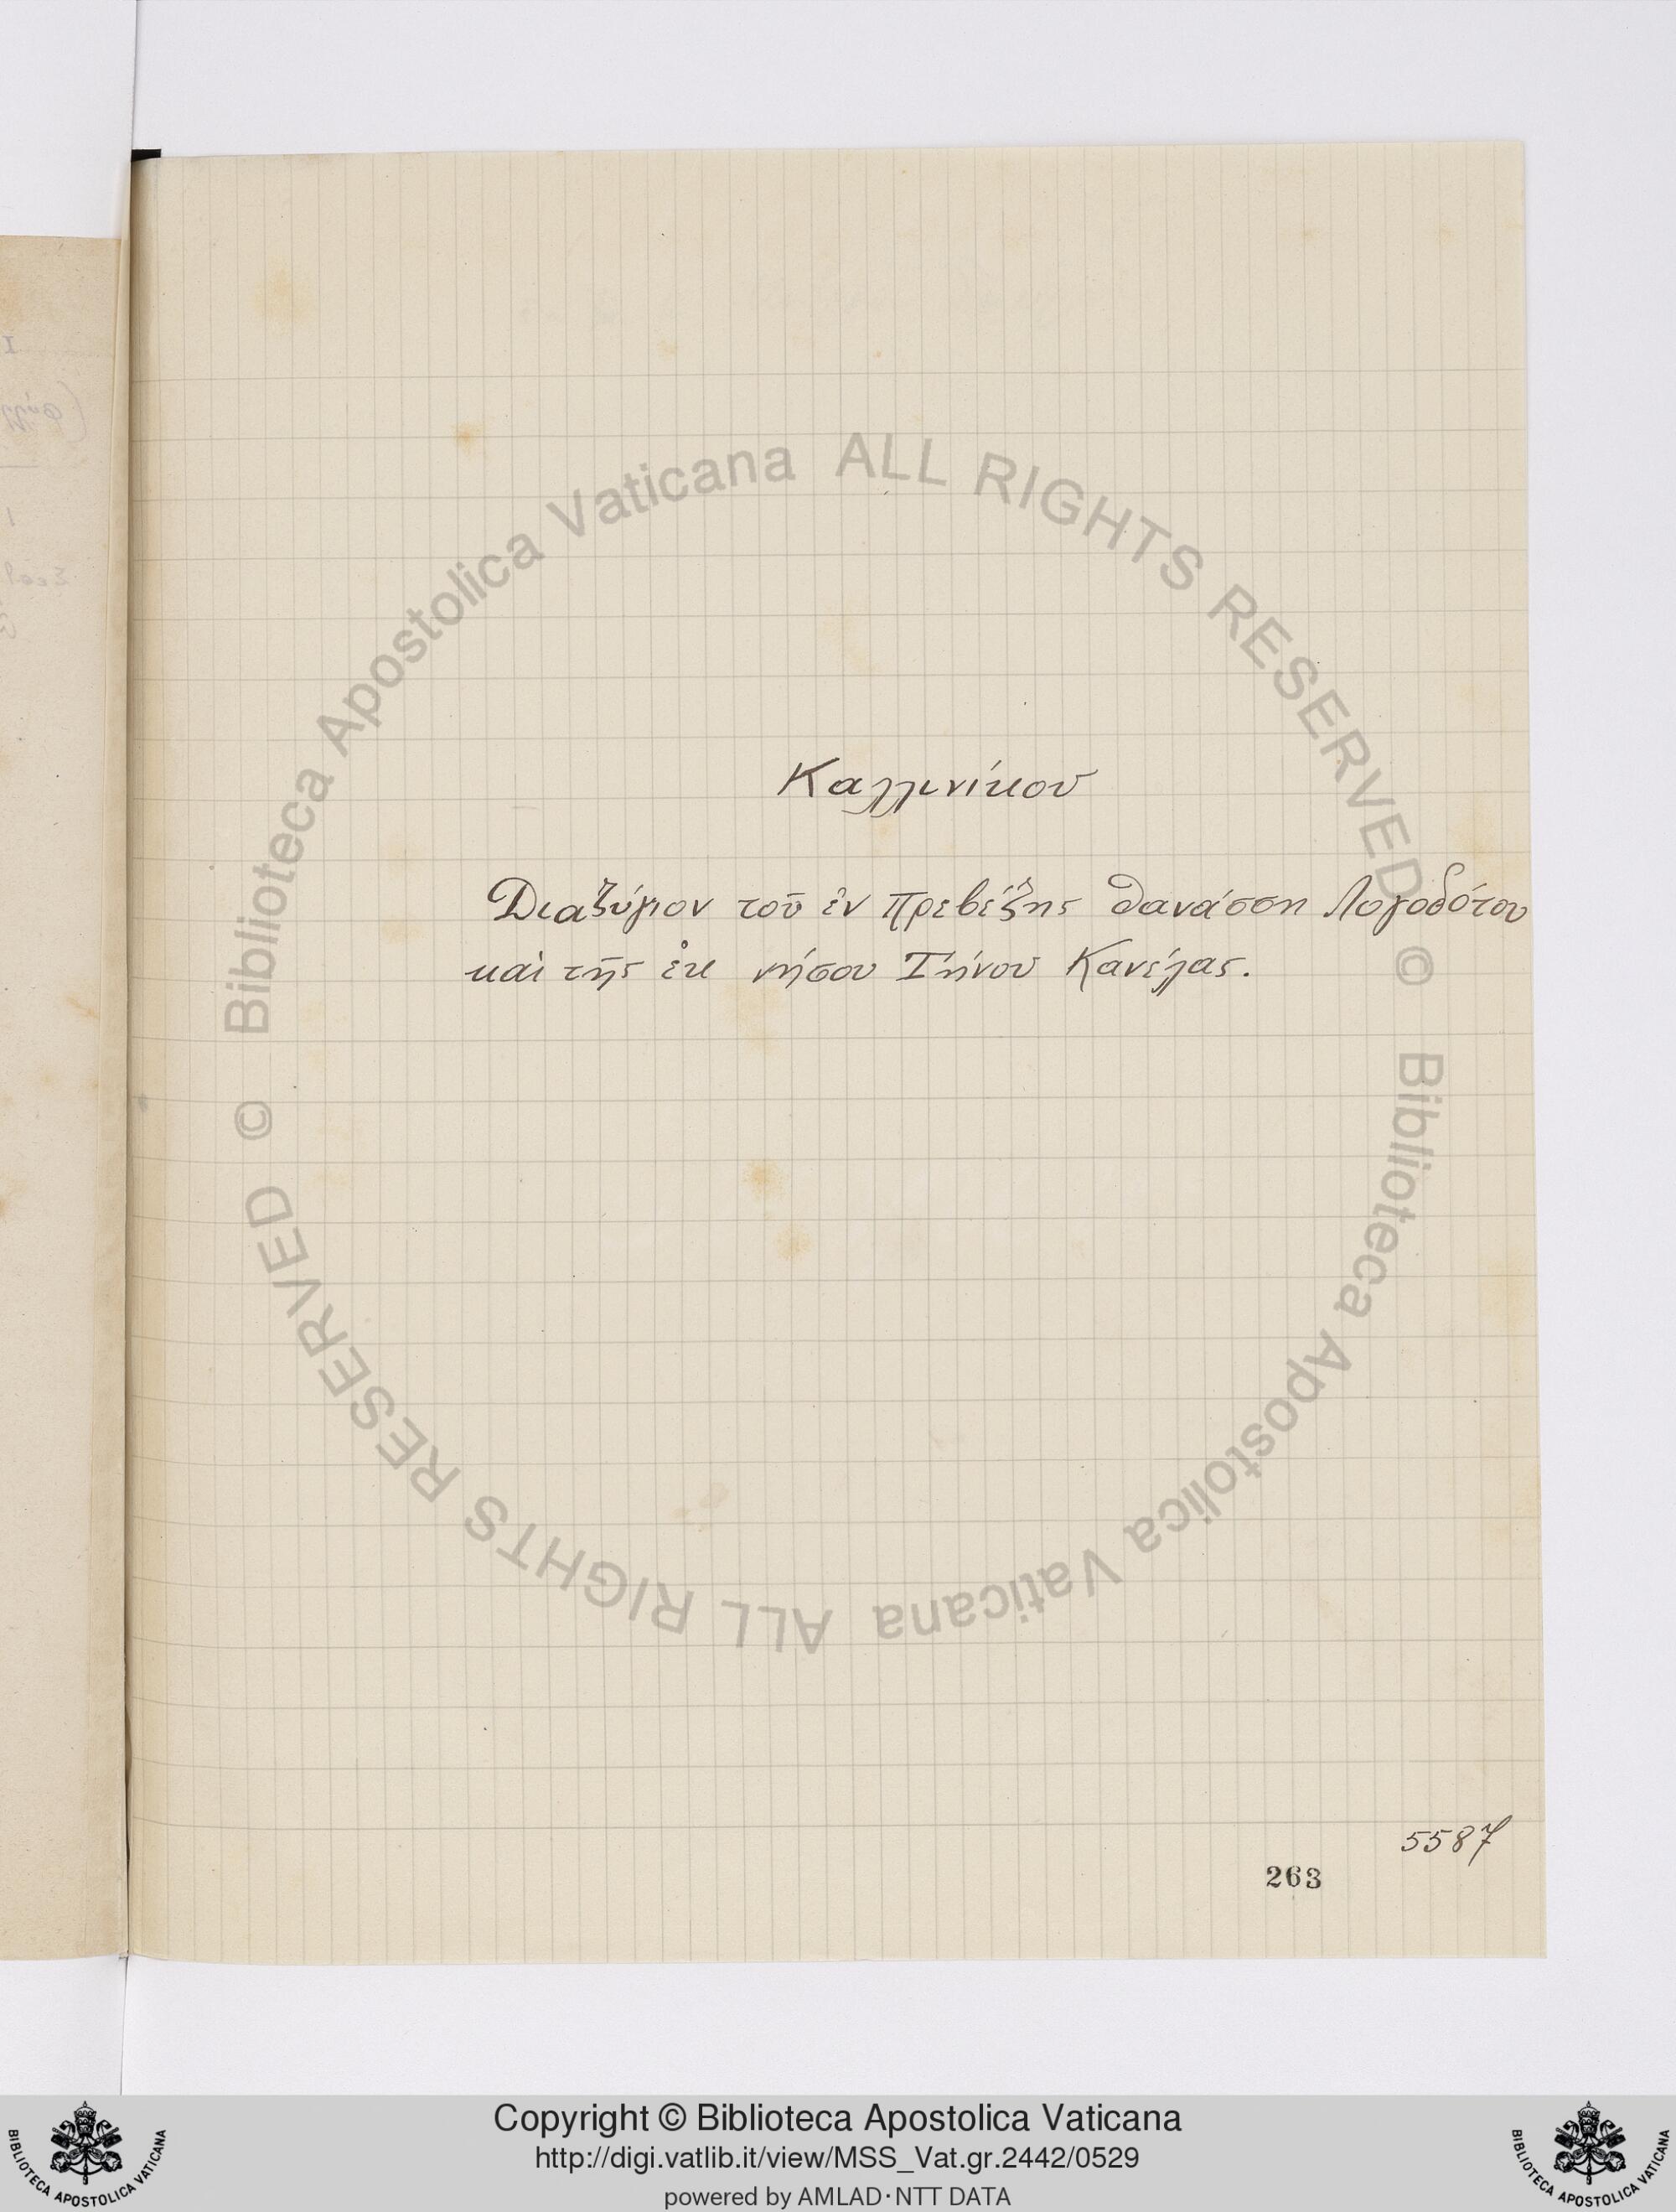 Καλλινίκου
Διαζύγιον τοῦ ἐν Πρεβέζης Θανάσση Λογοθότου
καὶ τῆς ἐκ νήσου Τήνου Κανέλας.
5587
263
© Biblioteca Apostolica Vaticana ALL RIGHTS RESERVED
© Biblioteca Apostolica Vaticana ALL RIGHTS RESERVED
Copyright © Biblioteca Apostolica Vaticana
http://digi.vatlib.it/view/MSS_Vat.gr.2442/0529
powered by AMLAD·NTT DATA
BIBLIOTECA APOSTOLICA VATICANA
BIBLIOTECA APOSTOLICA VATICANA